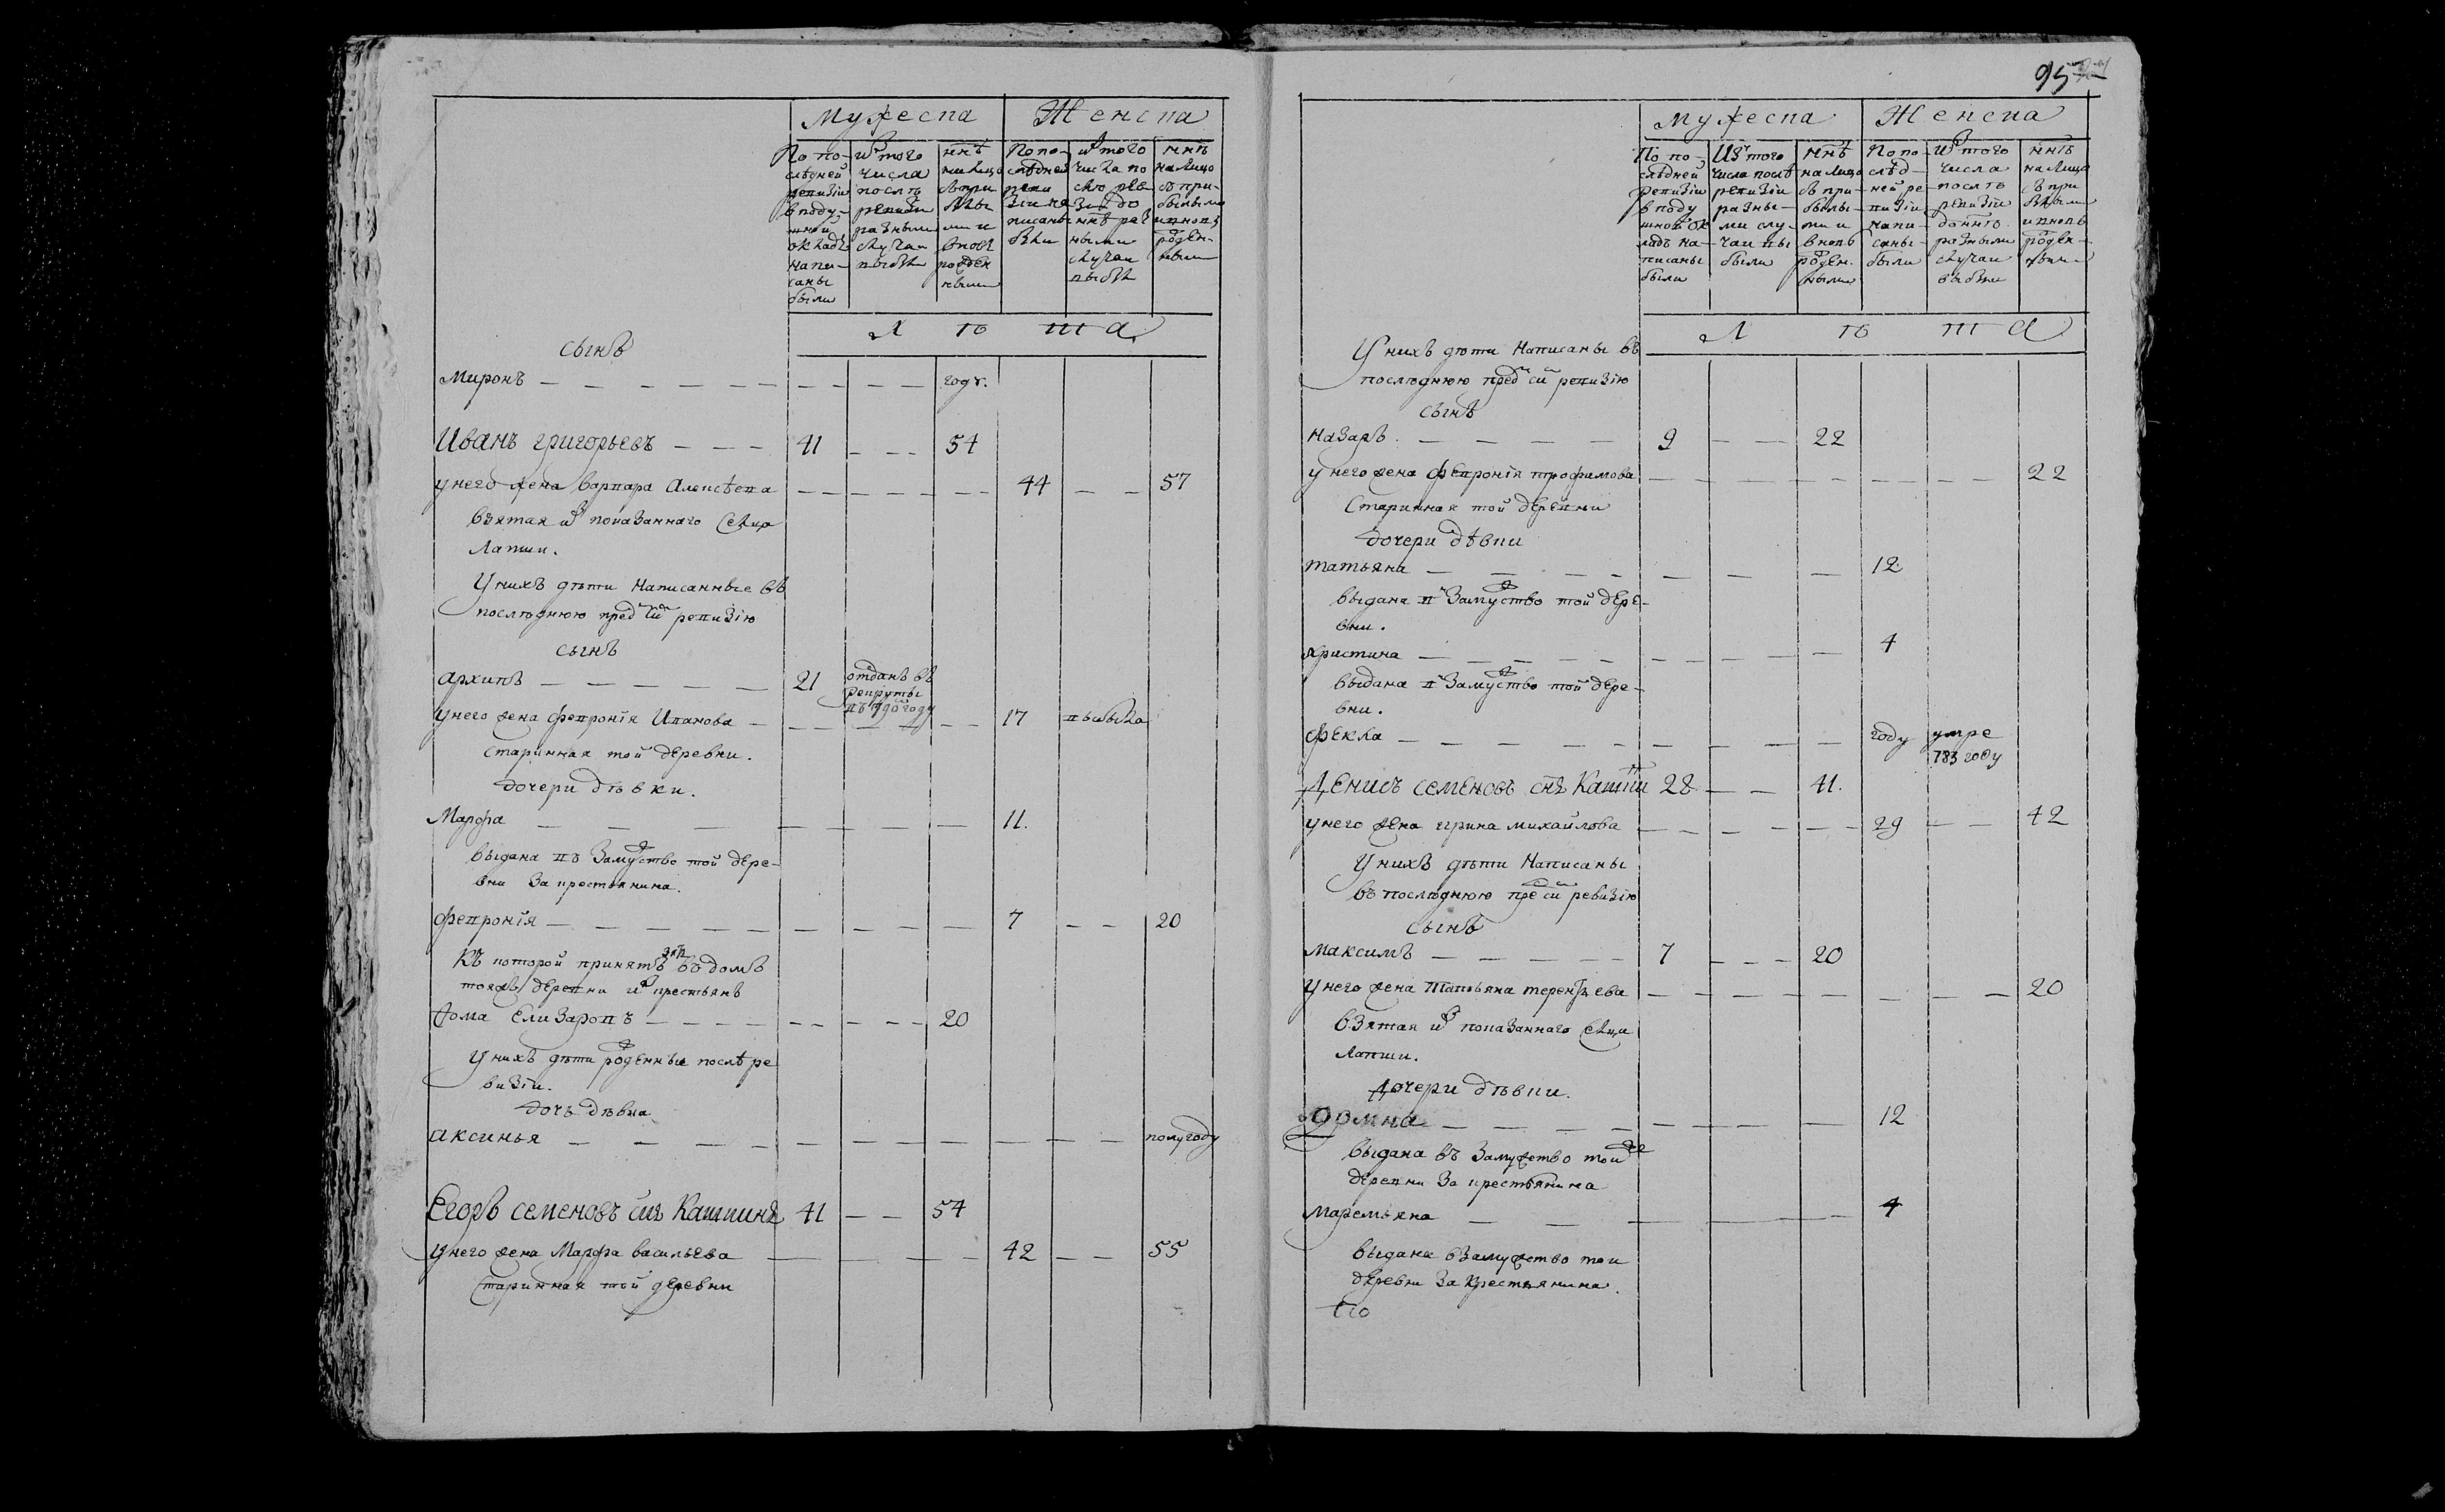 Мужеска Женска
По по-
следней
ревизіи
в поду-
шной
окладъ
напи-
саны
были
ис того
числа
послѣ
ревизіи
разными
случаи
выбы
ннѣ
на лицо
с при
былы
ми и
вновь
рожден
ными
По по-
следней
реви
зіи на
писаны
бы
ис того
числа по
слѣ реви
зіи до
ннѣ раз
ными
случаи
выбы
ннѣ
на лицо
съ при-
былыми
и вновь
рожден-
ными
Л ѣ т а
сынъ
Миронъ — годъ.
Иванъ григорьевъ — 41 — 54
у него жена варвара Алексѣева — 44 — 57
взятая из показаннаго селца
Лапши.
У нихъ дѣти Написанные въ
последнюю пред сим ревизію
сынъ
архипъ — 21 отданъ въ
рекруты
въ 790 году
у него жена февронія Иванова — 17 выбыла
старинная той деревни.
дочери дѣвки.
Марфа — 11.
выдана въ замужство той дере-
вни за крестьянина.
февронія — 7 — 20
Къ которой принятъ зять въ домъ
тояжъ деревни из крестьянъ
Фома Елизаровъ — 20
У нихъ дѣти рожденные послѣ ре
визіи.
дочь дѣвка
аксинья — полугоду
Егоръ семеновъ снъ Кашпинъ 41 — 54
у него жена Марфа васильева — 42 — 55
старинная той деревни
95
Мужеска Женска
По по-
следней
ревизіи
в поду
шной ок
ладъ на-
писаны
были
Из того
числа послѣ
ревизіи
разны-
ми слу-
чаи вы
были
ннѣ
на лицо
съ при-
былы-
ми и
вновь
рожден.
ными
По по-
слѣд-
ней ре-
визіи
напи-
саны
были
Из того
числа
послѣ
ревизіи
до ннѣ
разными
случаи
выбыли
ннѣ
на лицо
съ при
былыми
и вновь
рожден-
ными
Л ѣ т а
У нихъ дѣти Написаны въ
последнюю пред сим ревизію
сынъ
назаръ. — 9 — 22
у него жена февронія трофимова — 22
Старинная той деревни
дочери дѣвки
татьяна — 12
выдана в замужство той дере-
вни.
христина — 4
выдана в замужство той дере-
вни.
фекла — году умре
783 году
Денисъ семеновъ снъ Кашпи 28 — 41.
у него жена ирина михайлова — 29 — 42
У нихъ дѣти Написаны
въ последнюю пред сим ревизію
сынъ
максимъ — 7 — 20
у него жена татьяна терентьева — 20
взятая из показаннаго селца
Лапши.
Дочери дѣвки.
— 12
выдана въ замужство той же
деревни за крестьянина
маремьяна — 4
выдана взамужство той
деревни за крестьянина.